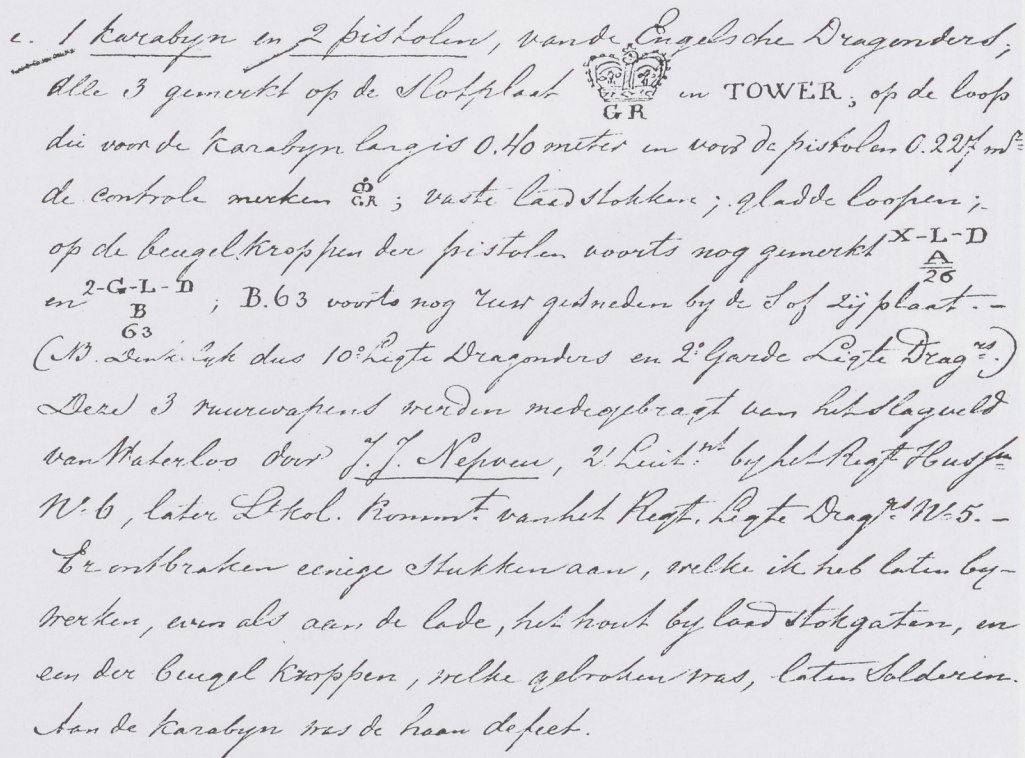 c. 1 karabyn en 2 pistolen, van de Engelsche Dragonders;
Alle 3 gemerkt op de Slotplaat GR en TOWER; op de loop
die voor de karabyn lang is 0.40 meter en voor de pistolen 0.22½ mrs
de controle merken GR; vaste laadstokken; gladde loopen;
op de beugelkroppen der pistolen voorts nog gemerkt X-L-D A 26
en 2-G-L-D B 63; B.63 voorts nog ruw gesneden by de S of zijplaat.-
(NB. Denkelyk dus 10e Ligte Dragonders en 2e Garde Ligte Dragrs.)
Deze 3 vuurwapens werden medegebragt van het slagveld
van Waterloo door J. J. Nepveu, 2e Luitnt by het Regt Hussn
No 6, later Lt kol. Kommt. van het Regt. Ligte Dragrs No 5.-
Er ontbraken eenige stukken aan, welke ik heb laten by-
werken, even als aan de lade, het hout by laadstokgaten, en
een der beugel kroppen, welke gebroken was, laten solderen.
Aan de karabyn was de haan defect.